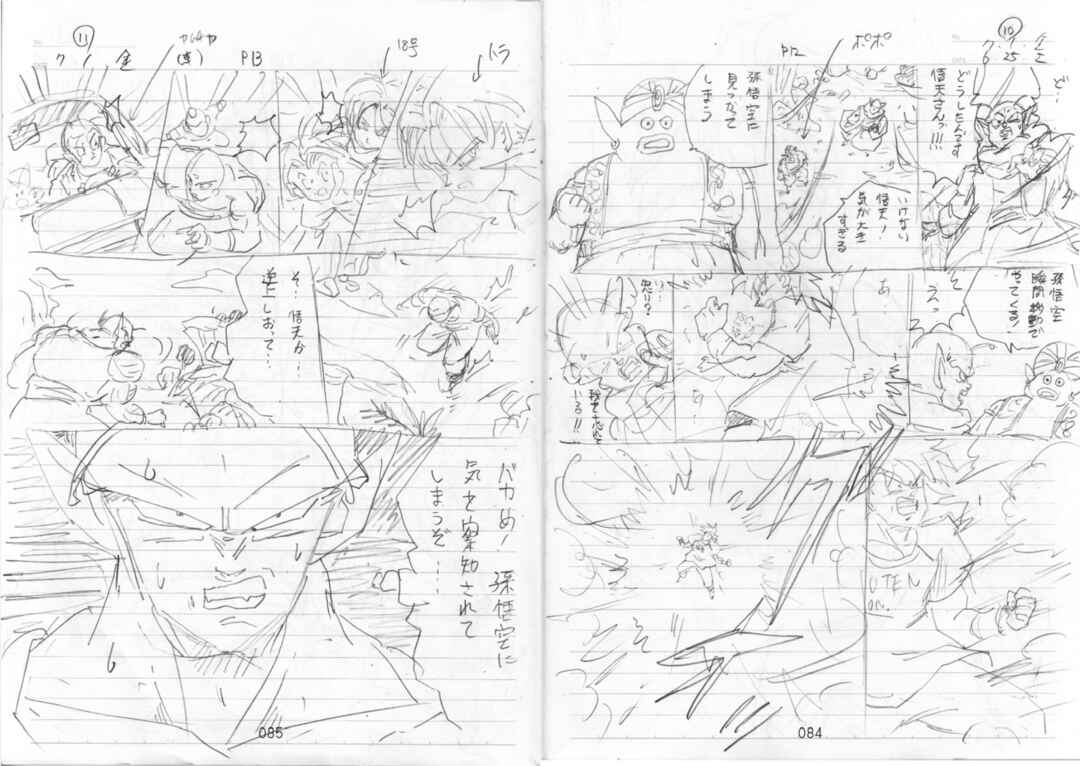 ⑩
ポポ
P12
ど…
どうしたんです
悟天さんっ!!!
いけない
悟天!
気が大き
すぎる
孫悟空に
見つかって
しまう
孫悟空
瞬間移動で
やってくる!
そ
えっ
あ
い…
084
⑪
P13
18号
トラ
そ…悟天が…
逆上しおって…
バカめ! 孫悟空に
気を察知されて
しまうぞ…
085